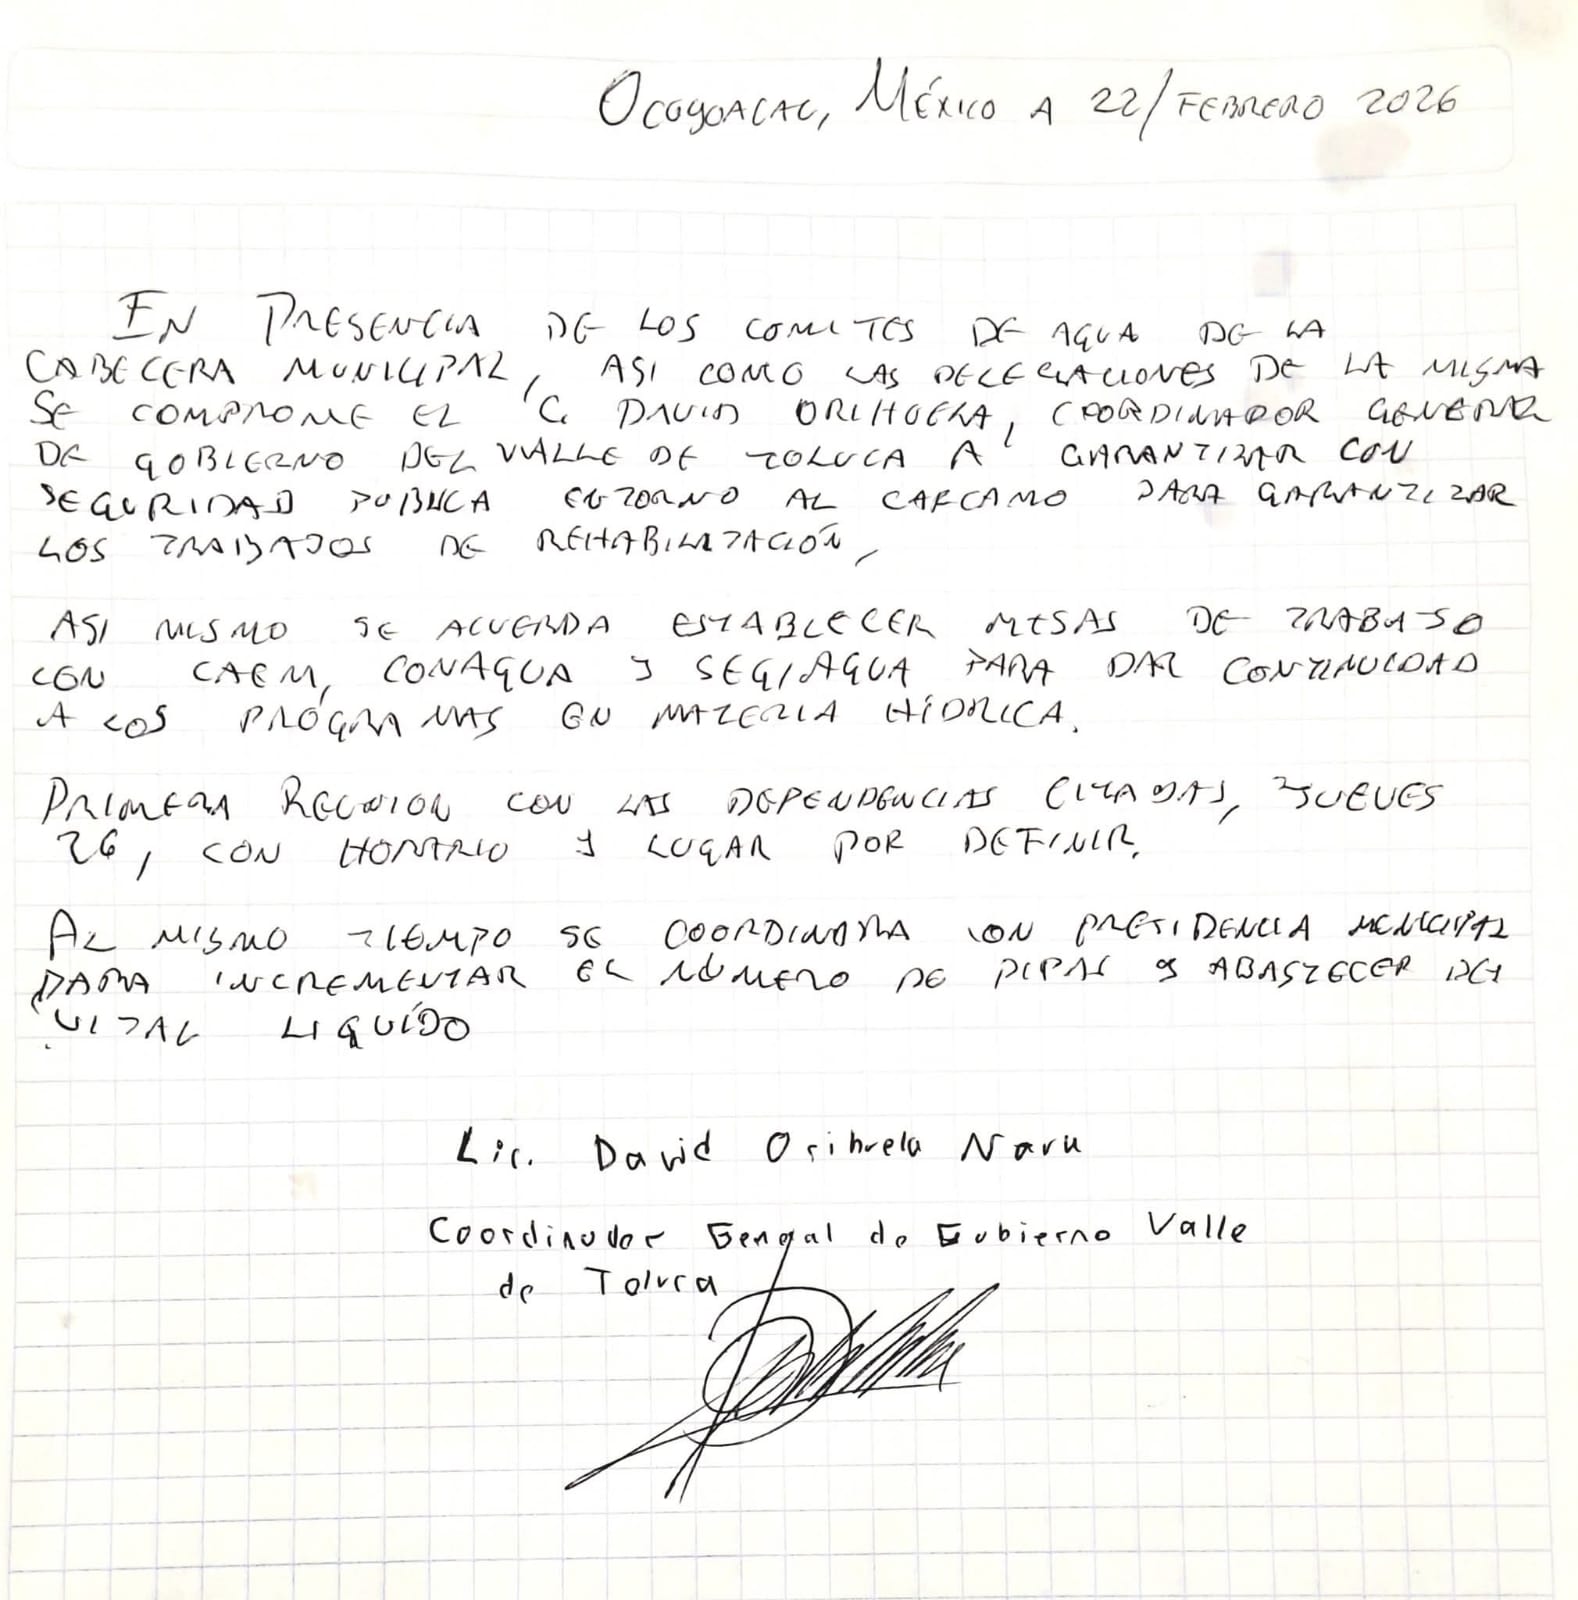 Ocoyoacac, México a 22/Febrero 2026
En Presencia de los comites de agua de la
cabecera municipal, asi como las delegaciones de la misma
se comprome el C. David Orihuela, coordinador general
de gobierno del Valle de Toluca a garantizar con
seguridad publica entorno al carcamo para garantizar
los trabajos de rehabilitación,
Asi mismo se acuerda establecer mesas de trabajo
con CAEM, CONAGUA y SEGIAGUA para dar continuidad
a los programas en materia hídrica.
Primera Reunion con las dependencias citadas, Jueves
26, con horario y lugar por definir.
Al mismo tiempo se coordinara con presidencia municipal
para incrementar el número de pipas y abastecer del
vital liquído
Lic. David Orihuela Nava
Coordinador General de Gobierno Valle
de Toluca